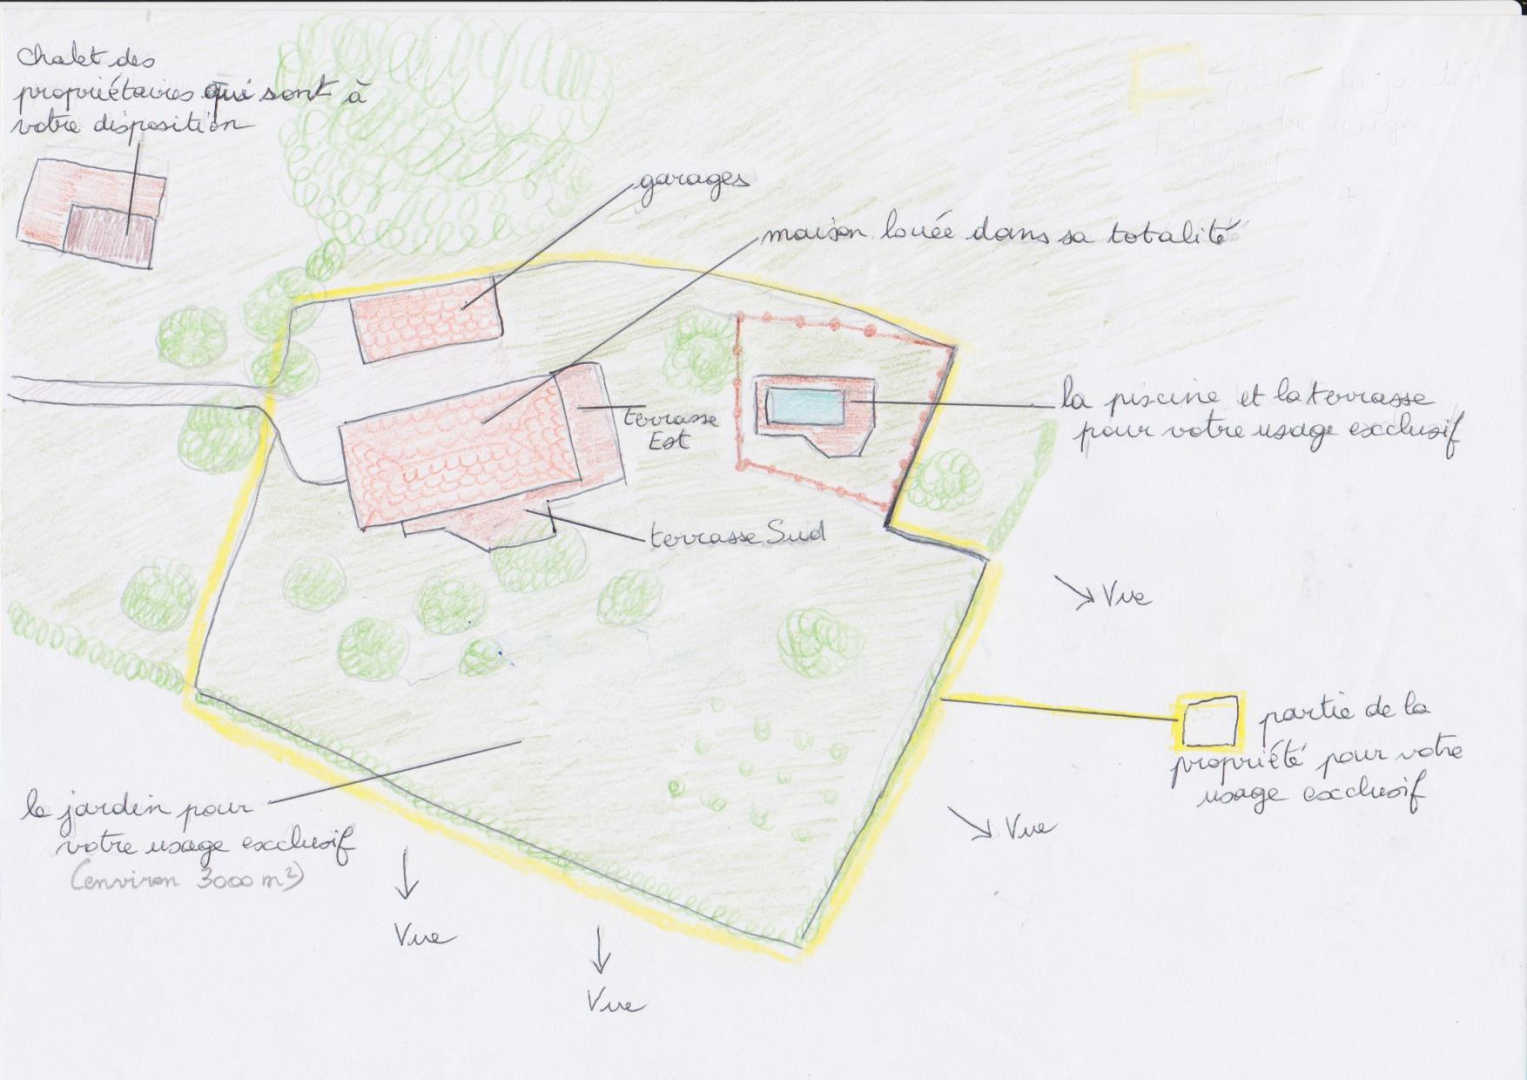 Chalet des
propriétaires qui sont à
votre disposition
garages
maison louée dans sa totalité
terrasse
Est
la piscine et la terrasse
pour votre usage exclusif
terrasse Sud
Vue
partie de la
propriété pour votre
usage exclusif
le jardin pour
votre usage exclusif
(environ 3000 m²)
Vue
Vue
Vue